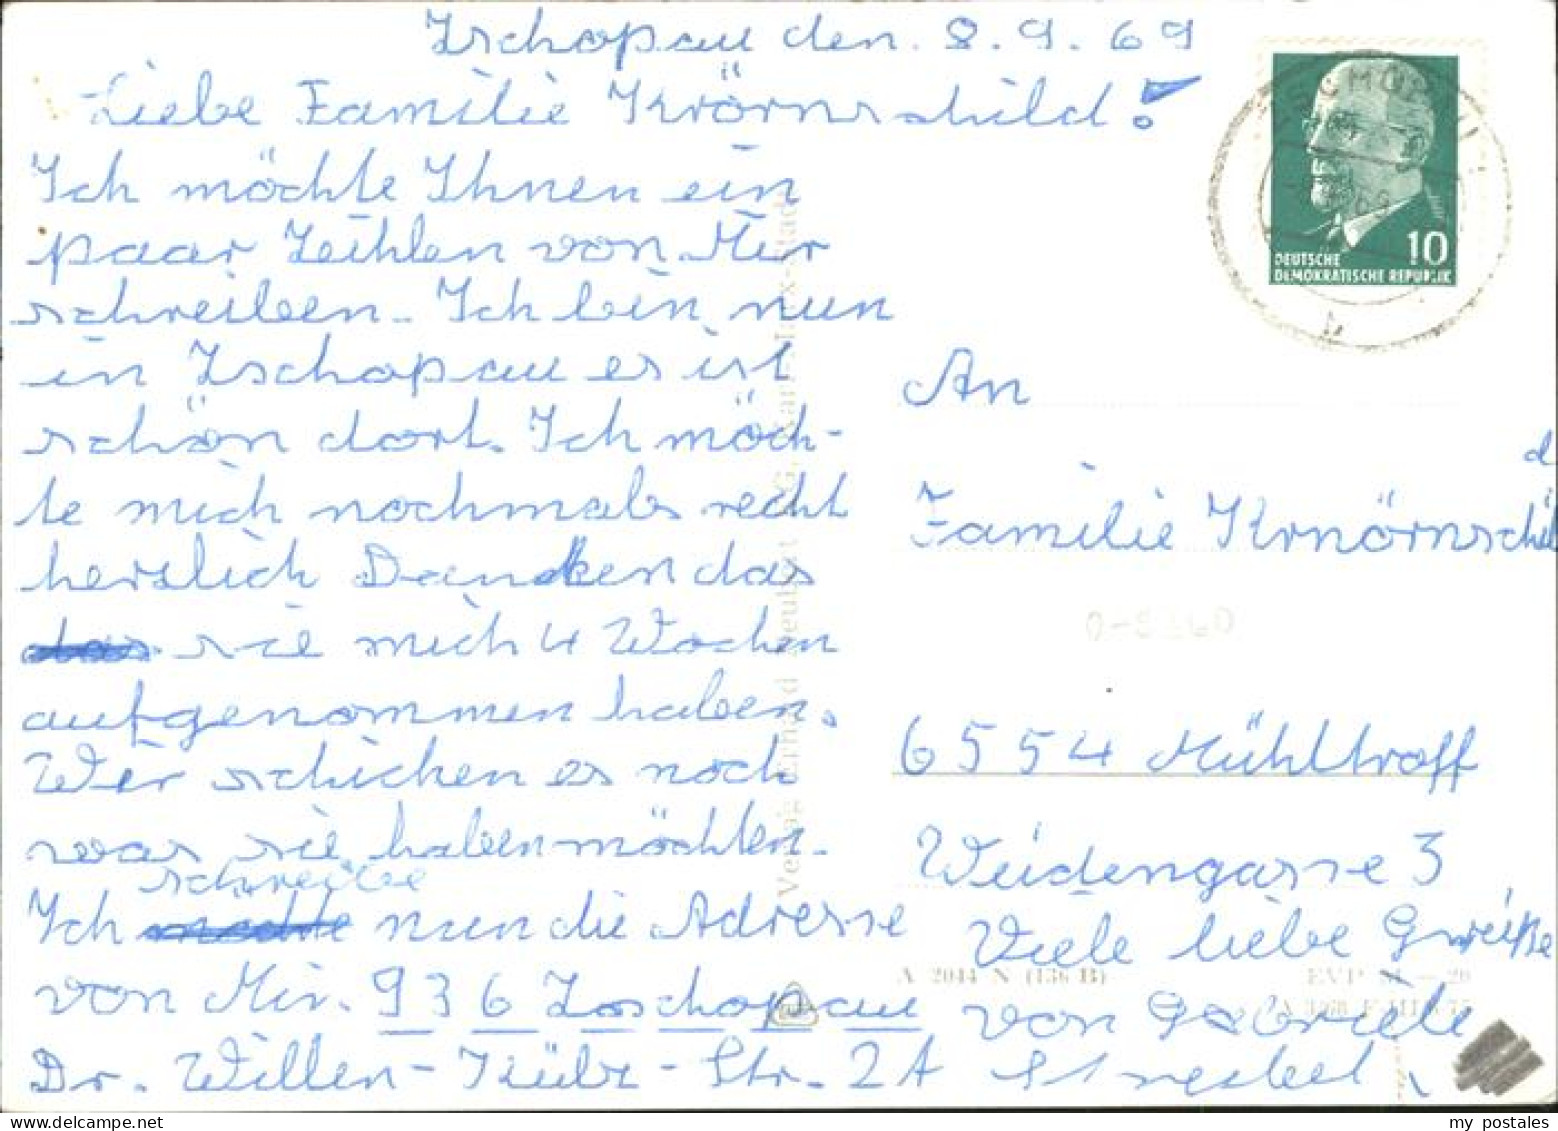 Zschopau den. 8.9.69
Liebe Familie Krörnrschild!
Ich möchte Ihnen ein
paar Zeihlen von Mir
schreiben. Ich bin nun
in Zschopau es ist
schön dort. Ich möch-
te mich nochmals recht
herzlich Dancken das
sie mich 4 Wochen
aufgenommen haben.
Wer schicken es noch
was sie haben möchten.
schreibe
Ich nun die Adresse
von Mir. 936 Zschopau
Dr. Willen-Külz-Str. 2A
10
DEUTSCHE
DEMOKRATISCHE REPUBLIK
An
d
Familie Krnörnrschil
6554 Mühltroff
Weidengasse 3
Viele liebe Grreiße
von Gabriele
A 2044 N (136 B)
my postales